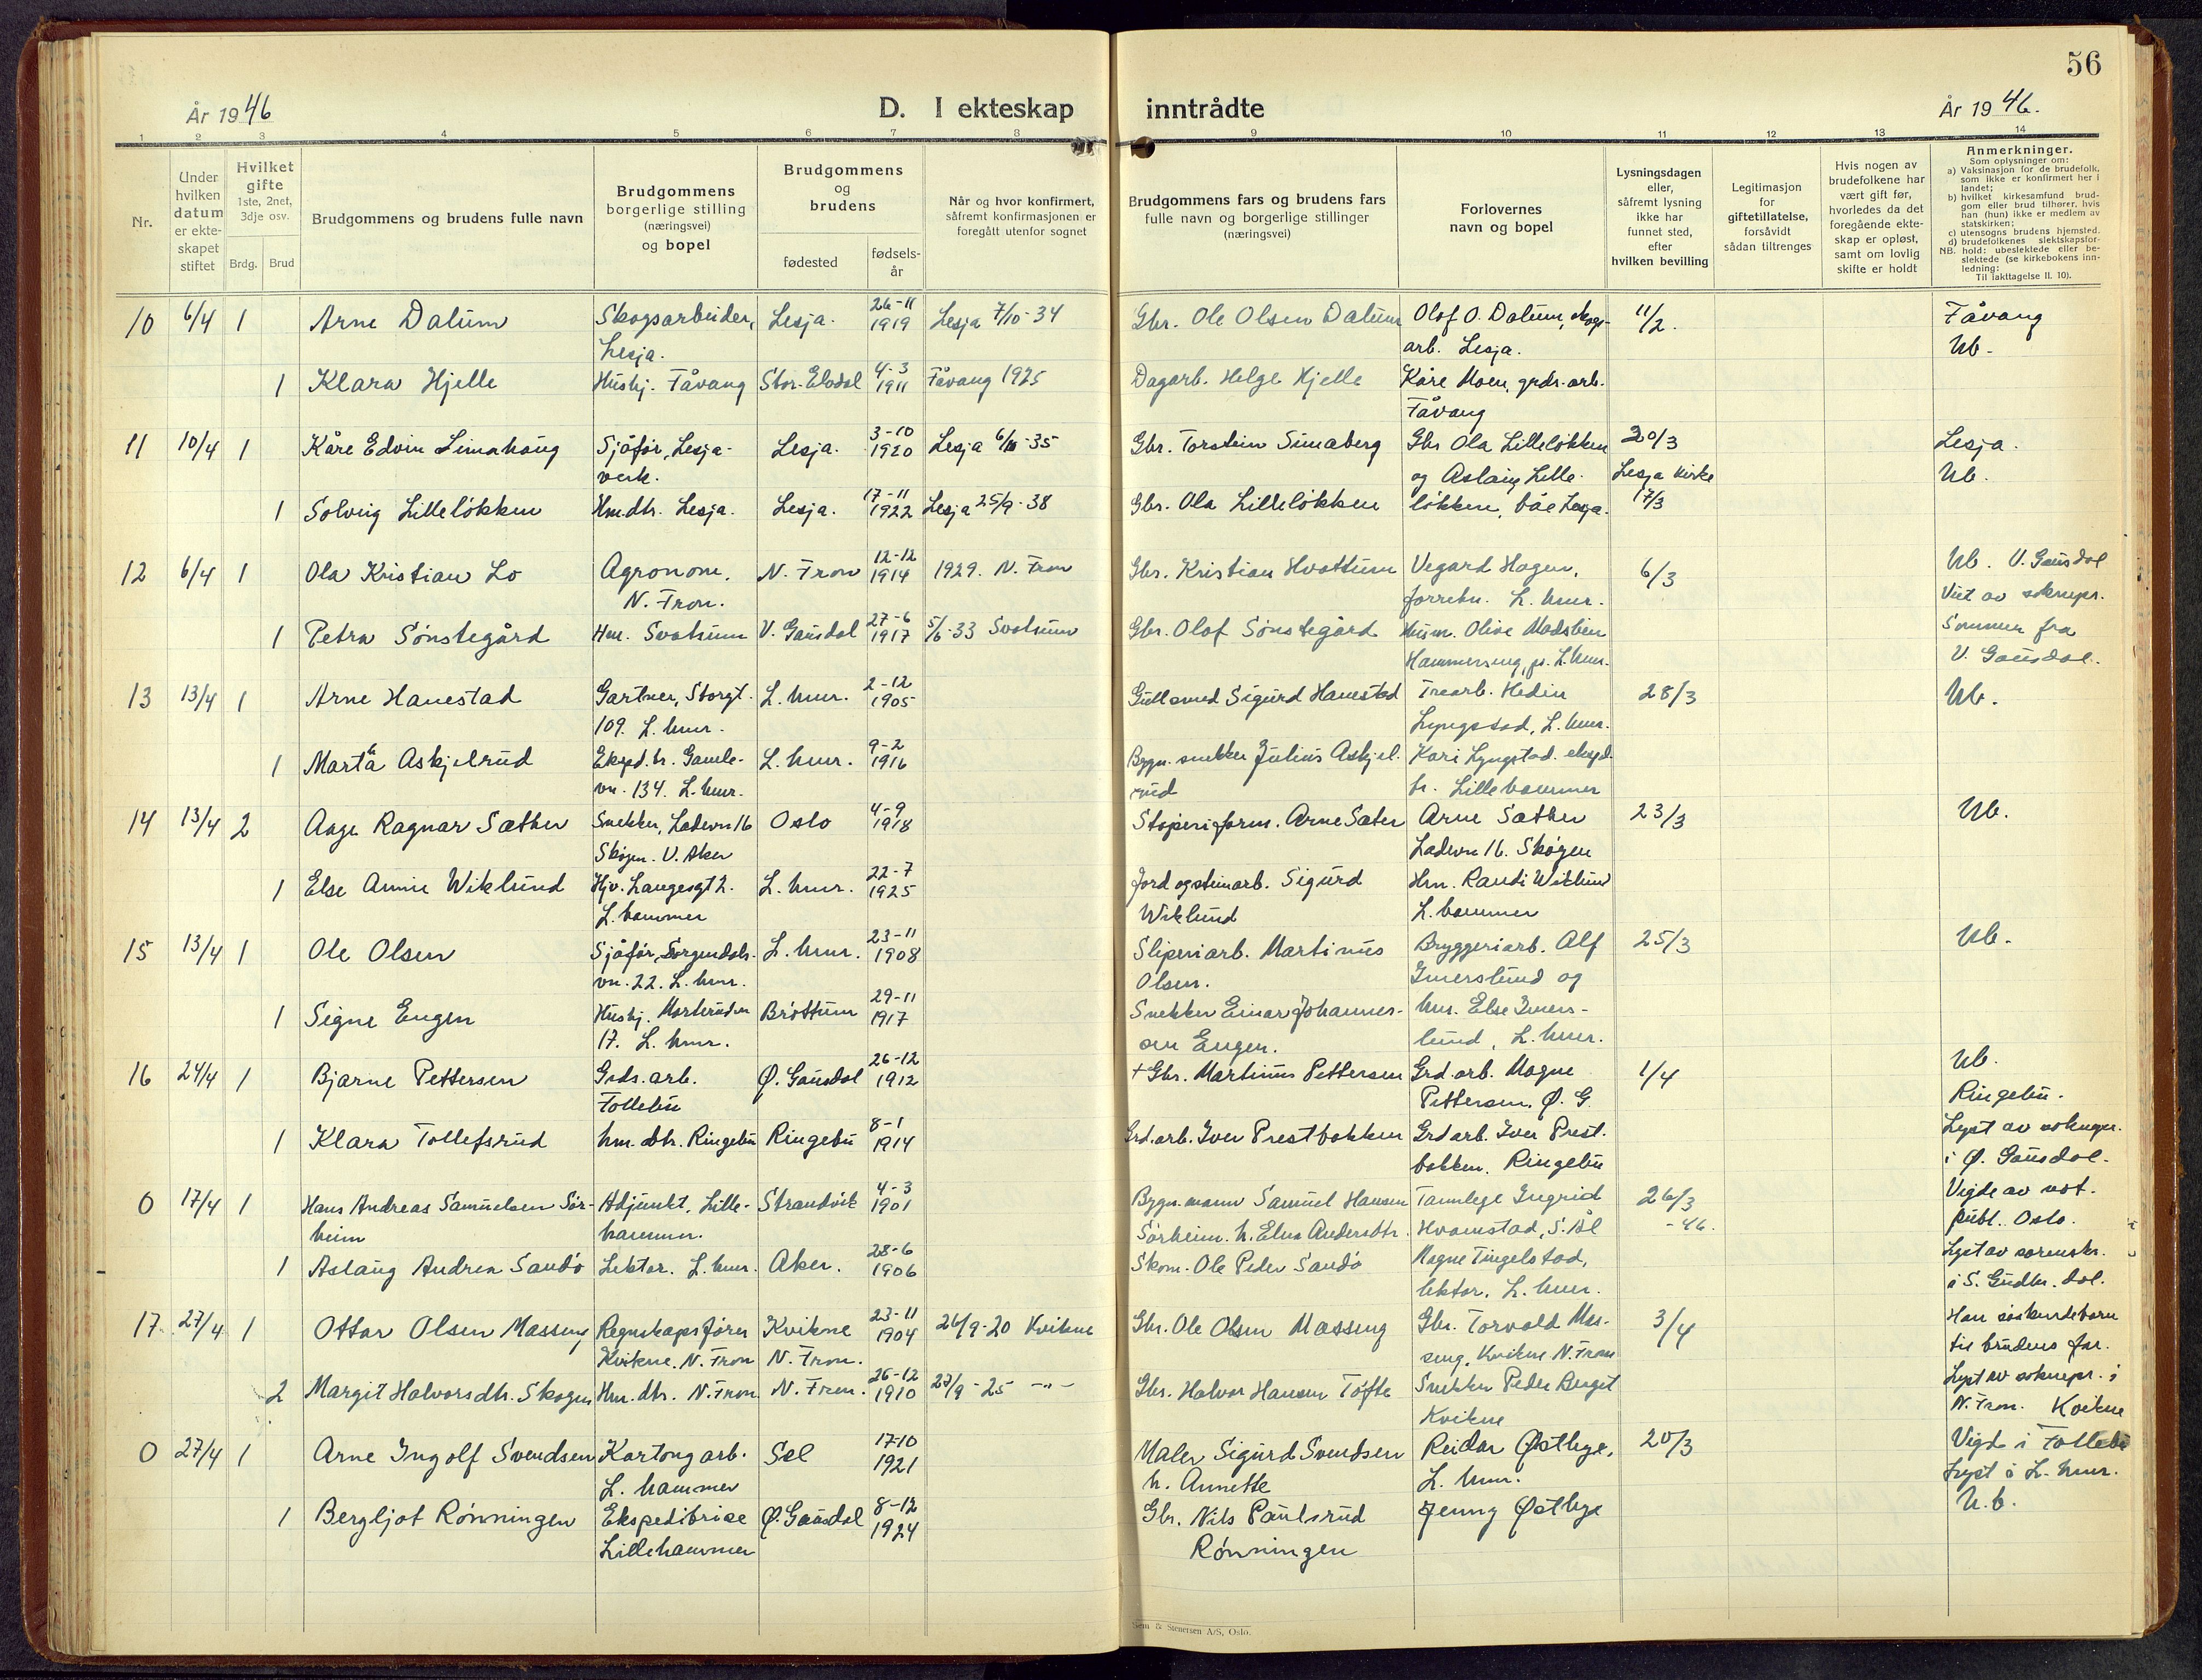 56
År 1946
D. I ekteskap inntrådte
År 1946.
1 2 3 4 5 6 7 8 9 10 11 12 13 14
Nr.
Under hvilken datum er ekteskapet stiftet
Hvilket gifte 1ste, 2net, 3dje osv.
Brdg. Brud
Brudgommens og brudens fulle navn
Brudgommens borgerlige stilling (næringsvei) og bopel
Brudgommens og brudens
fødested
fødselsår
Når og hvor konfirmert, såfremt konfirmasjonen er foregått utenfor sognet
Brudgommens fars og brudens fars fulle navn og borgerlige stillinger (næringsvei)
Forlovernes navn og bopel
Lysningsdagen eller, såfremt lysning ikke har funnet sted, efter hvilken bevilling
Legitimasjon for giftetillatelse, forsåvidt sådan tiltrenges
Hvis nogen av brudefolkene har vært gift før, hvorledes da det foregående ekteskap er opløst, samt om lovlig skifte er holdt
Anmerkninger.
Som oplysninger om:
a) Vaksinasjon for de brudefolk, som ikke er konfirmert her i landet;
b) hvilket kirkesamfund brudgom eller brud tilhører, hvis han (hun) ikke er medlem av statskirken;
c) utensogns brudens hjemsted.
d) brudefolkenes slektskapsforhold: ubeslektede eller beslektede (se kirkebokens innledning:
NB.
Til iakttagelse II. 10).
10 6/4 1 Arne Dalum Skogsarbeider, Lesja. Lesja. 26-11 1919 Lesja 7/10-34 Gbr. Ole Olsen Dalum Olof O. Dalum, skogsarb. Lesja. 11/2. Fåvang Ub.
1 Klara Hjelle Hushj. Fåvang Stor-Elvdal 4-3 1911 Fåvang 1925 Dagarb. Helge Hjelle Kåre Moen, grds.arb. Fåvang
11 10/4 1 Kåre Edvin Simahaug Sjåfør, Lesjaverk. Lesja. 3-10 1920 Lesja 6/10-35 Gbr. Torstein Simaberg Gbr Ola Lilleløkken og Aslaug Lilleløkken, båe Lesja. 20/3 Lesja kirke 17/3 Lesja. Ub.
1 Solveig Lilleløkken Hm.dtr. Lesja. Lesja. 17-11 1922 Lesja 25/9-38 Gbr. Ola Lilleløkken
12 6/4 1 Ola Kristian Lo Agronom, N. Fron. N. Fron 12-12 1914 1929. N. Fron Gbr. Kristian Hvattum Vegard Hagen, forretn. L.hmr. 6/3 Ub. V. Gausdal Viet av soknepr. Sommer fra V. Gausdal.
1 Petra Sønstegård Hm. Svatsum V. Gausdal 27-6 1917 5/6-33 Svatsum Gbr. Olof Sønstegård Husm. Olive Madslien Hammerseng, pr. L.hmr.
13 13/4 1 Arne Hanestad Gartner, Storgt. 109. L.hmr. L.hmr. 2-12 1905 Gullsmed Sigurd Hanestad Trearb. Hedin Lyngstad, L.hmr. 28/3 Ub.
1 Marta Askjelrud Eksped.tr. Gamlevn. 134. L.hmr. L.hmr. 9-2 1916 Bygn.snekker Julius Askjelrud Kari Lyngstad eksped.tr. Lillehammer
14 13/4 2 Aage Ragnar Sæther Snekker, Ladevn 16 Skøyen. V. Aker Oslo 4-9 1918 Støperiform. Arne Sæter Arne Sæther Ladevn 16. Skøyen 23/3 Ub.
1 Else Annie Wiklund Hjv. Langesgt 2. L.hammer L.hmr. 22-7 1925 Jord og steinarb. Sigurd Wiklund Hm. Randi Wiklund L.hammer
15 13/4 1 Ole Olsen Sjåfør, Sorgendalsvn. 22. L.hmr. L.hmr. 23-11 1908 Sliperiarb. Martinus Olsen. Bryggeriarb. Alf Imerslund og hm. Else Imerslund, L.hmr. 25/3 Ub.
1 Signe Engen Hushj. 17. L.hmr. Brøttum 29-11 1917 Snekker Einar Johannessen Engen.
16 24/4 1 Bjarne Pettersen Grds.arb. Follebu Ø. Gausdal 26-12 1912 + Gbr. Martinus Pettersen Grd.arb. Magne Pettersen. Ø. G. 1/4 Ub. Ringebu. Lyst av soknepr. i Ø. Gausdal.
1 Klara Tollefsrud hm.dtr. Ringebu Ringebu 8-1 1914 Grd.arb. Iver Prestbakken Grdarb. Iver Prestbakken. Ringebu
0 17/4 1 Hans Andreas Samuelsen Sørheim Adjunkt, Lillehammer. Strandvik 4-3 1901 Bygn.mann Samuel Hansen Sørheim. h. Elna Andersdtr. Tannlege Ingrid Hvamstad, S. Ål 26/3-46. Vigde av not. publ. Oslo. Lyst av sorenskr. i S. Gudbr.dal.
1 Aslaug Andrea Sandø Lektor. L.hmr. Aker. 28-6 1906 Skom. Ole Peder Sandø Magne Tingelstad, lektor, L.hmr.
17 27/4 1 Ottar Olsen Masseng Regnskapsfører Kvikne, N. Fron Kvikne N. Fron. 23-11 1904 26/9-20 Kvikne Gbr. Ole Olsen Masseng Gbr. Torvald Masseng, Kvikne N. Fron 3/4 Han søskendebarn til brudens far. Lyst av soknepr. i N. Fron. Kvikne
2 Margit Halvorsdtr. Skogen Hm.dtr. N. Fron N. Fron. 26-12 1910 27/9-25 -"- Gbr. Halvor Hansen Tofte Snekker Peder Berget Kvikne
0 27/4 1 Arne Ingolf Svendsen Kartongarb. L.hammer Sel 17-10 1921 Maler Sigurd Svendsen h. Annette Reidar Østlye, L.hmr. 20/3 Vigd i Follebu Lyst i L.hmr. U.b.
1 Bergljot Rønningen Ekspeditrise Lillehammer Ø. Gausdal 8-12 1924 Gbr. Nils Paulsrud Rønningen Jenny Østlye
Sem & Stenersen A/S, Oslo.